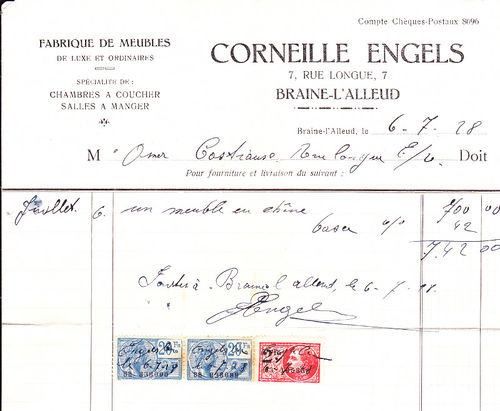 Compte Chèques-Postaux 8696
FABRIQUE DE MEUBLES
DE LUXE ET ORDINAIRES
SPÉCIALITÉ DE:
CHAMBRES A COUCHER
SALLES A MANGER
CORNEILLE ENGELS
7, RUE LONGUE, 7
BRAINE-L'ALLEUD
Braine-l'Alleud, le 6-7-28
M Omer rue longue E/V Doit
Pour fourniture et livraison du suivant :
Juillet 6. un meuble en chêne 700 00
taxe 6% 42
742 00
Braine l'alleud, le 6-7-28.
Engels
Engels 20
le 6.7.28
Engels 20
6.7.28